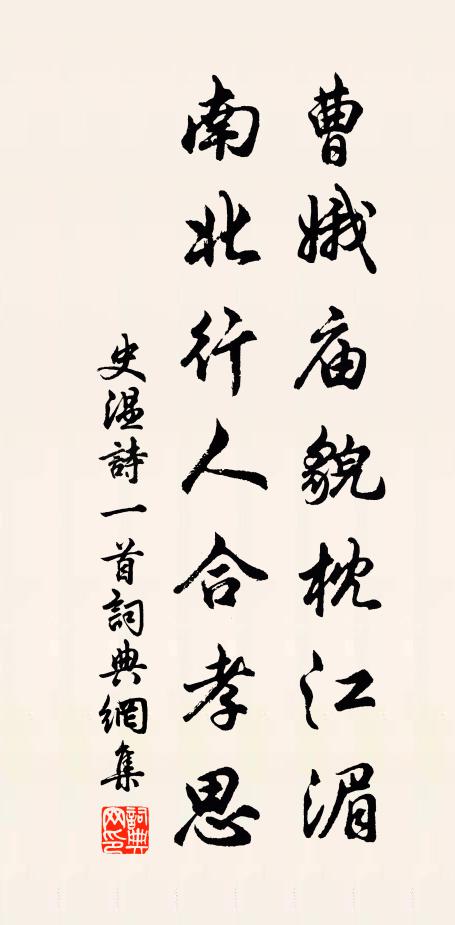 曹娥庙貌枕江湄
南北行人合孝思
史温詩一首詞典網集
詞典网印